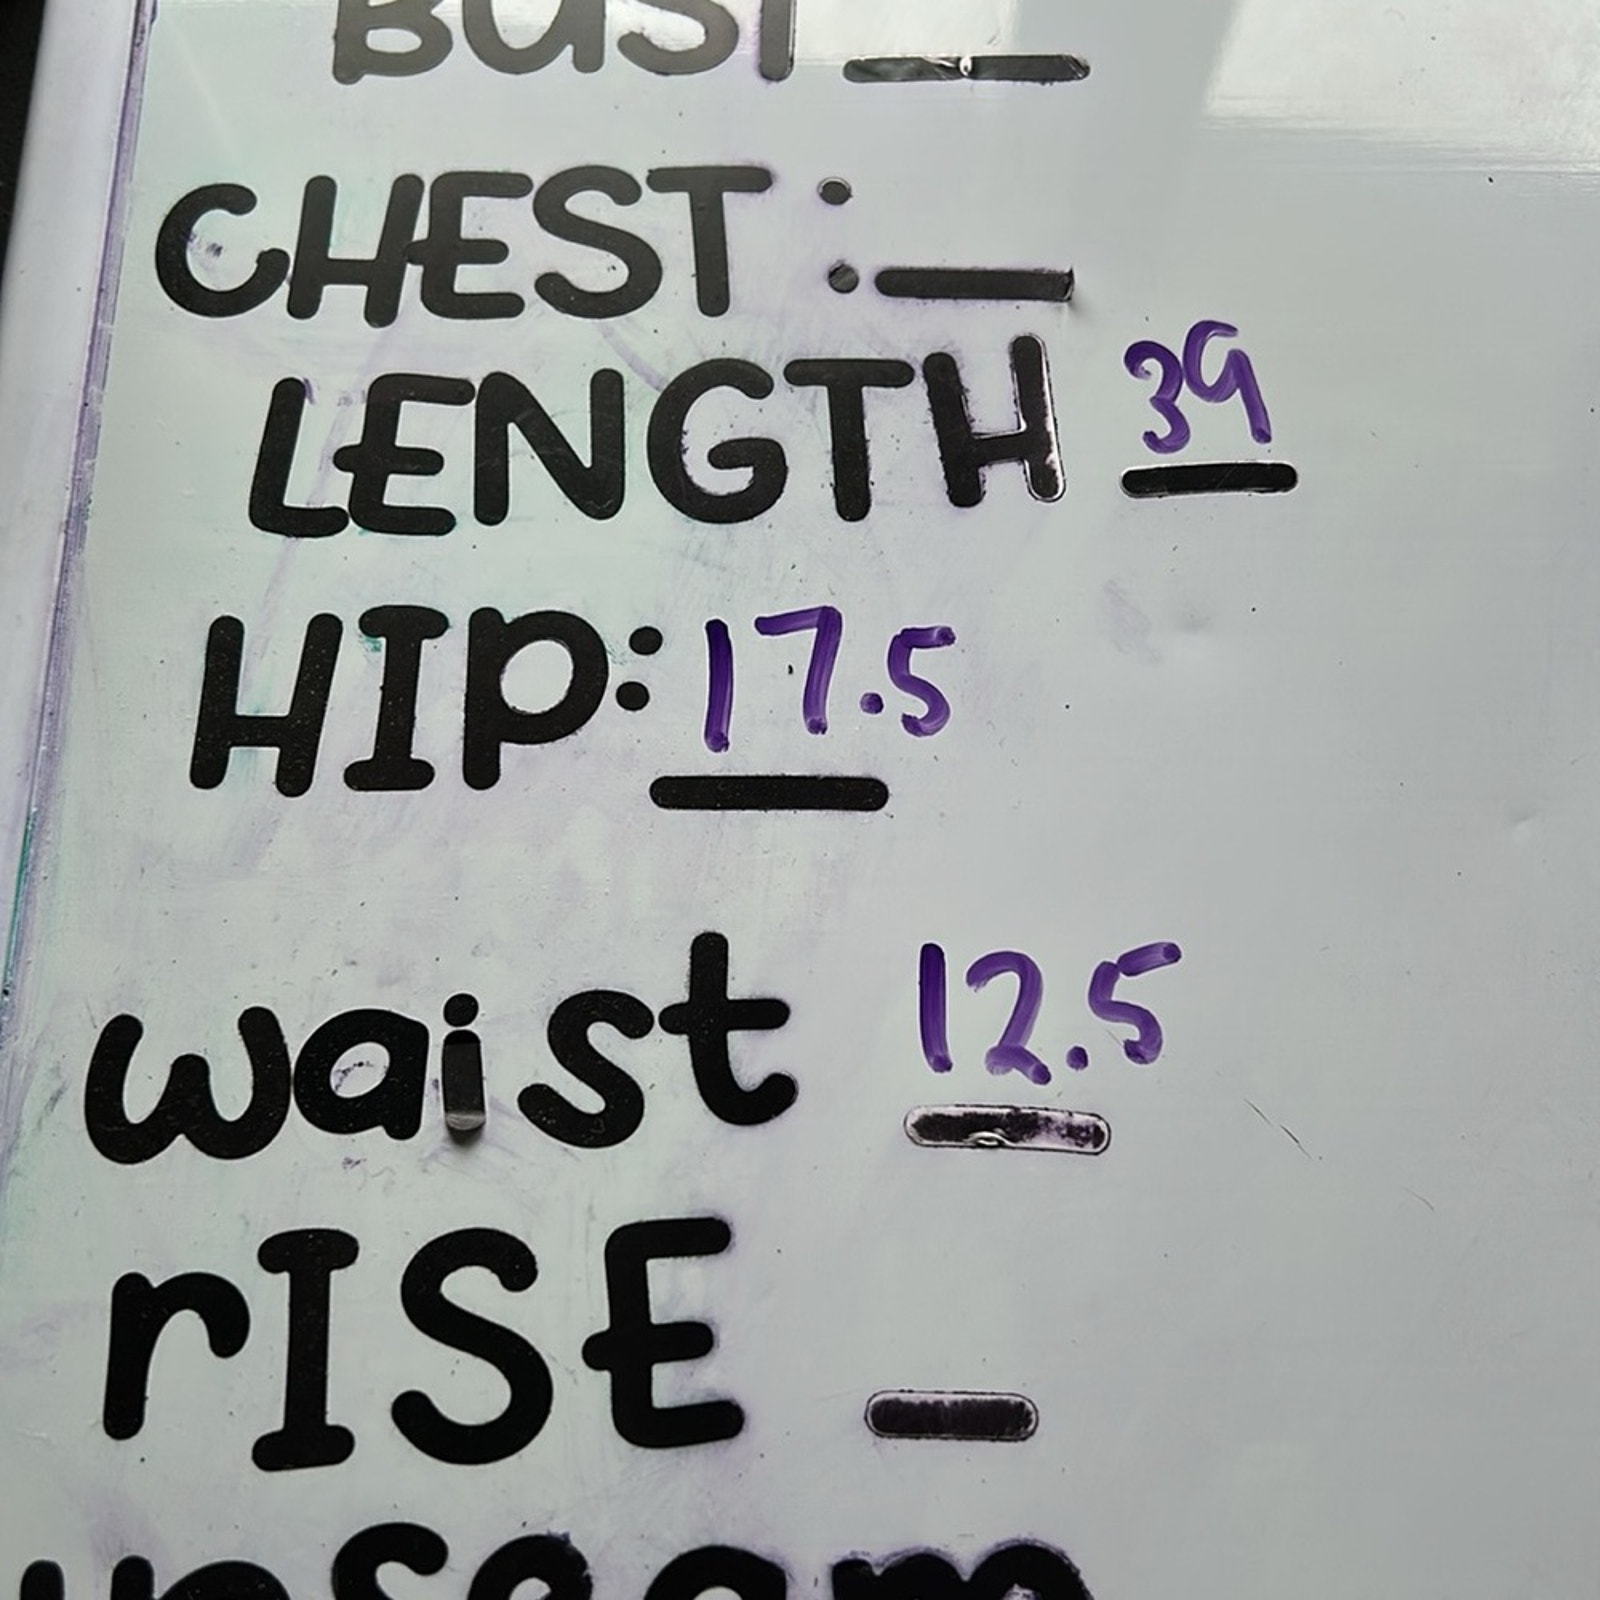 BUST _
CHEST : _
LENGTH 39
HIP: 17.5
waist 12.5
rISE _
inseam